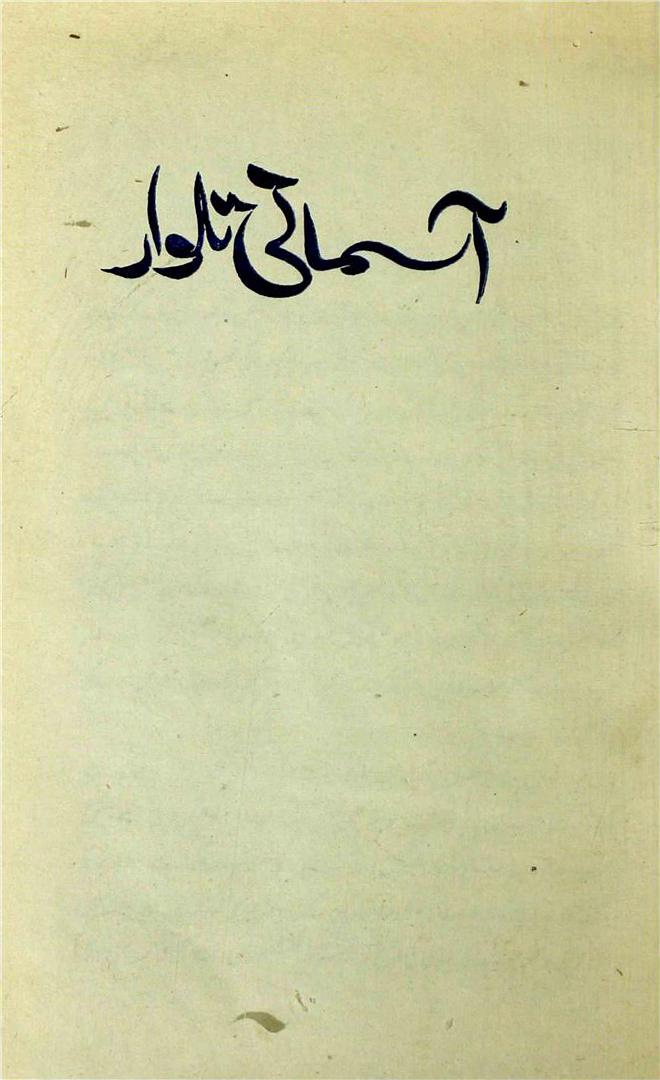 آسمانی تلوار